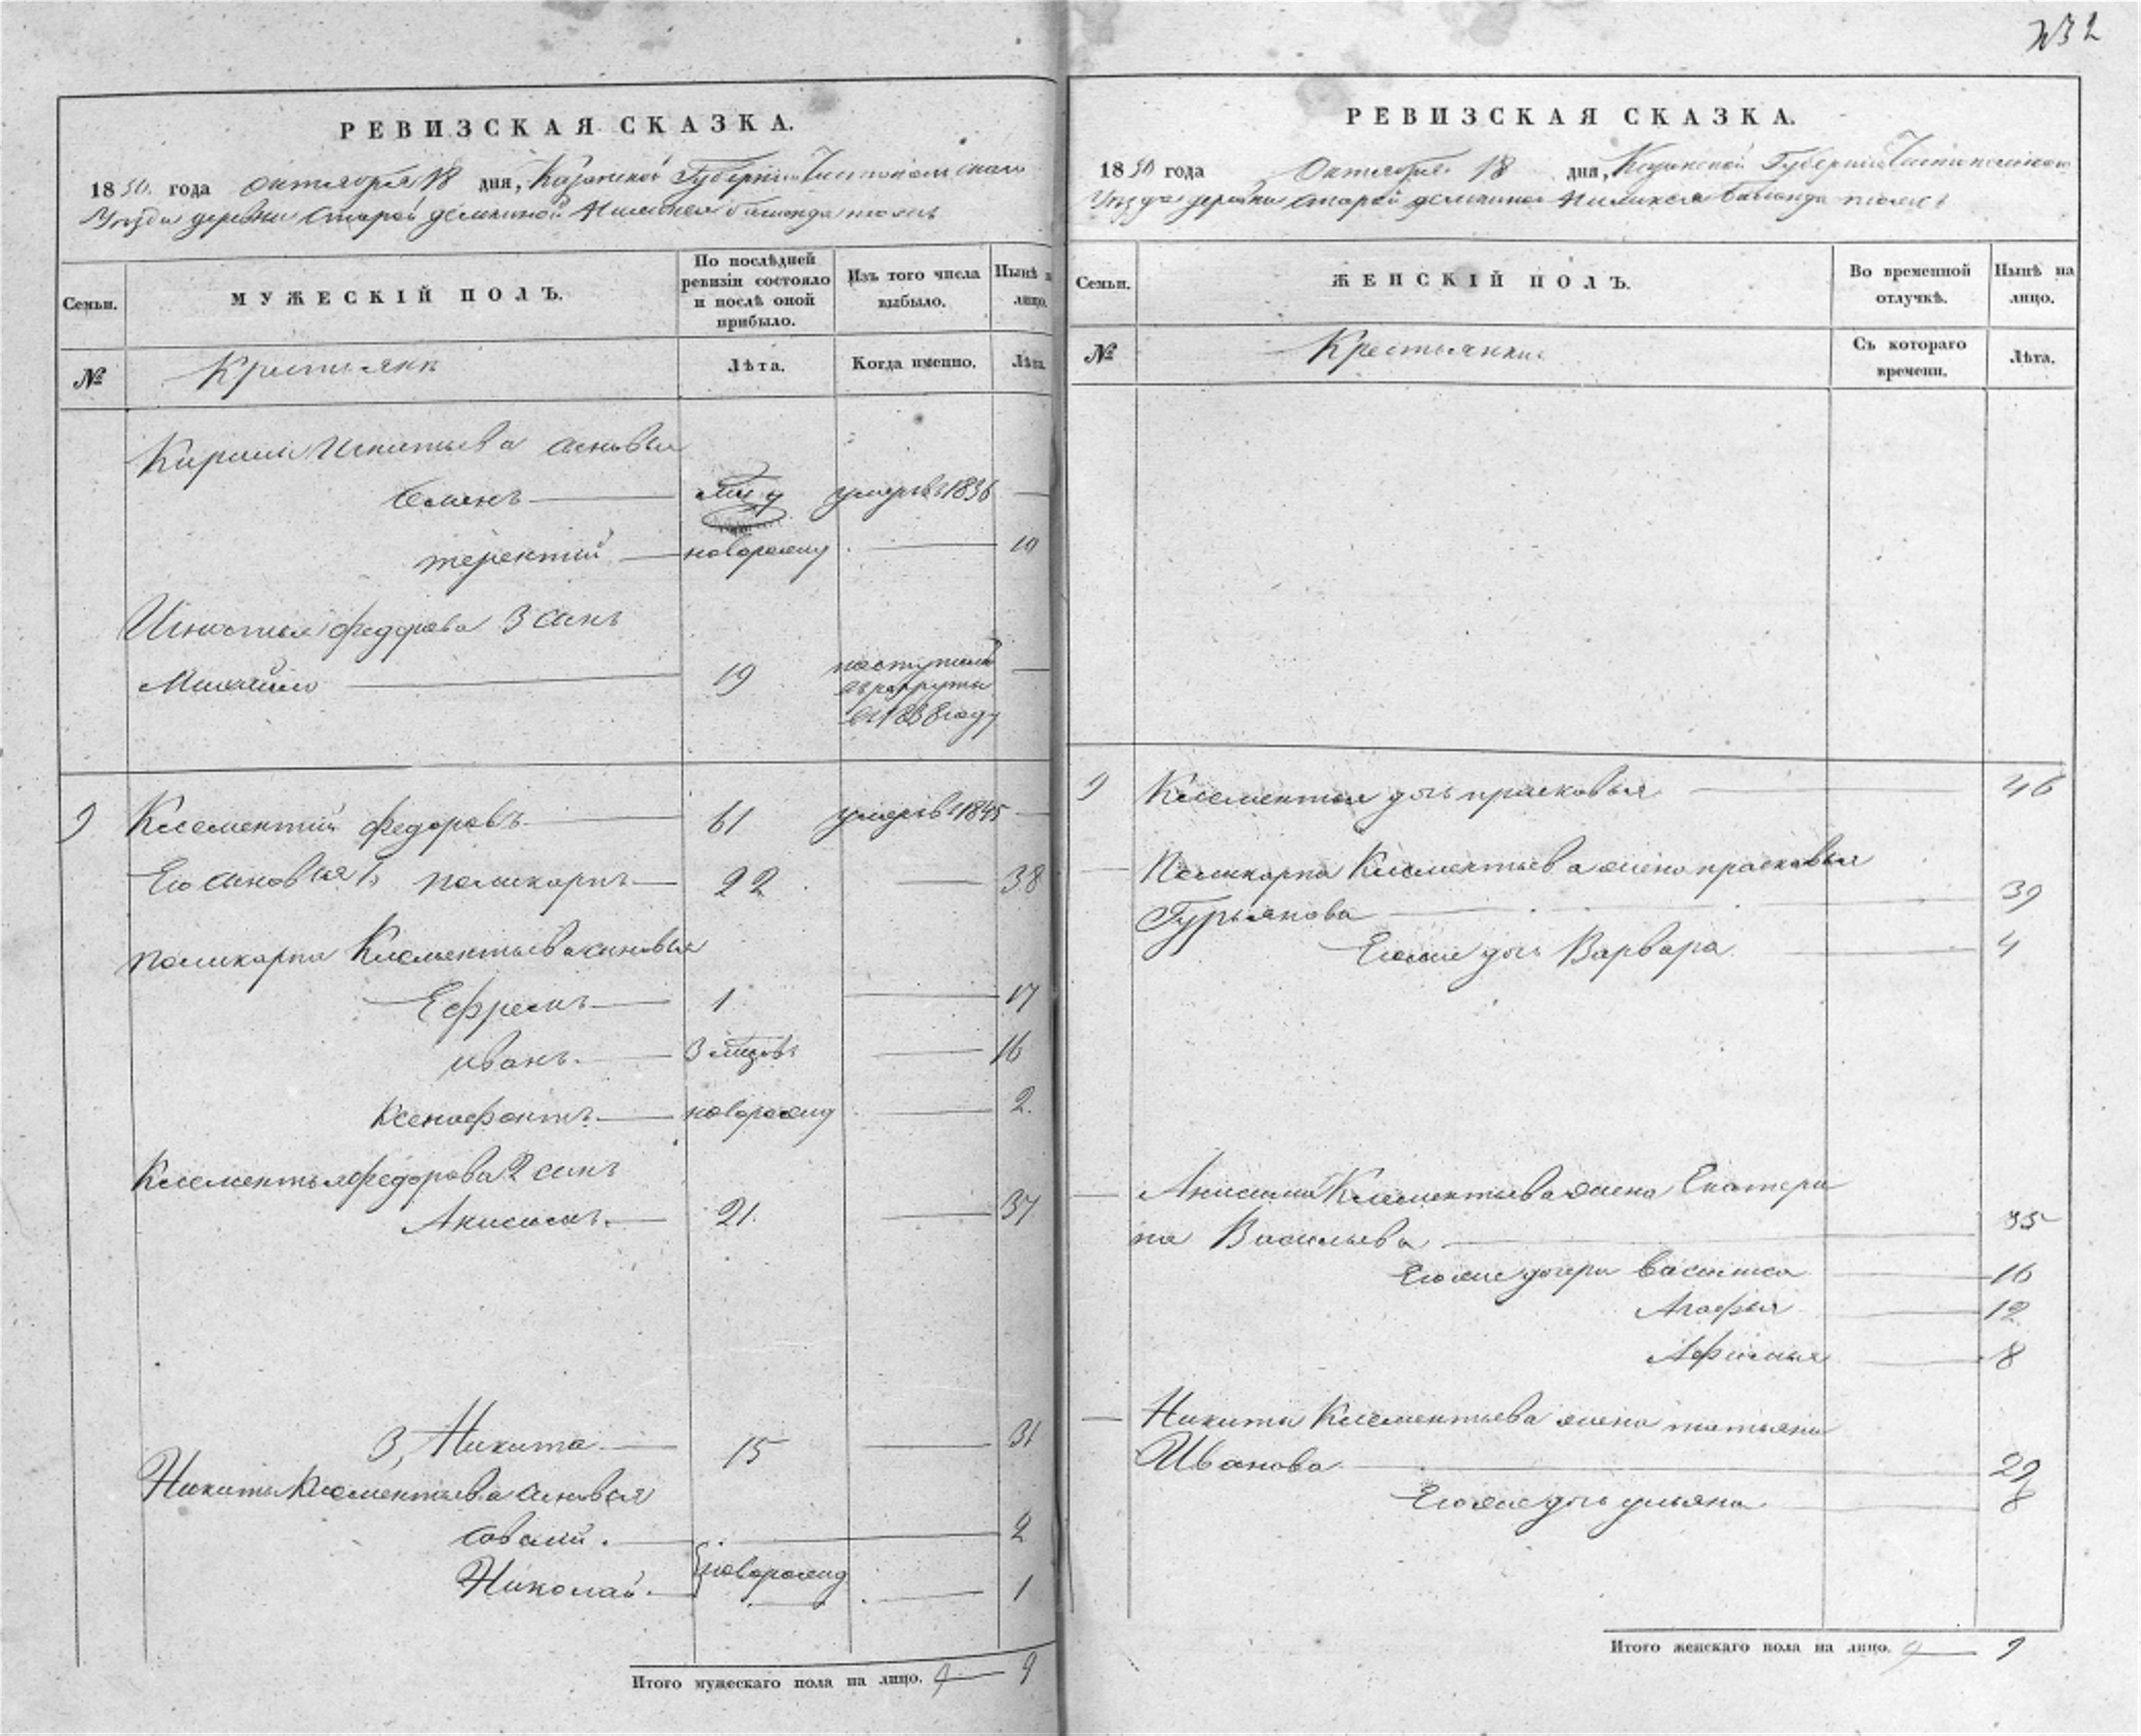 РЕВИЗСКАЯ СКАЗКА.
1850 года октября 18 дня, Казанской Губернии Чистопольскаго
Уезда деревни Старой
Семьи.
МУЖЕСКІЙ ПОЛЪ.
По послѣдней ревизіи состояло и послѣ оной прибыло.
Изъ того числа выбыло.
Нынѣ на лицо.
№
Крестьяне
Лѣта.
Когда именно.
Лѣта.
Кирила Игнатьева сыновья
Семенъ
умеръ въ 1836
терентий
новорожд
10
Игнатья федорова 3 сынъ
Михайло
19
поступилъ
въ рекруты
въ 1838 году
9 Клементий федоровъ 61 умеръ в 1845
Его сыновья 1, поликарпъ 22 38
поликарпа Клементьева сыновья
Ефремъ 1 17
иванъ 3 16
Ксенофонтъ новорожд 2
Клементья федорова 2 сынъ
Анисимъ 21 37
3, Никита 15 31
Никиты Клементьева сыновья
савелий 2
Николай новорожд 1
Итого мужескаго пола на лицо. 9
732
РЕВИЗСКАЯ СКАЗКА.
1850 года Октября 18 дня, Казанской Губернии Чистопольскаго
Уезда деревни старой
Семьи.
ЖЕНСКІЙ ПОЛЪ.
Во временной отлучкѣ.
Нынѣ на лицо.
№
Крестьянки
Съ котораго времени.
Лѣта.
9 Клементья дочь прасковья 46
Поликарпа Клементьева жена прасковья
Гурьянова 39
Его же дочь Варвара 4
Анисима Клементьева жена Екатери
на Васильева 35
Его же дочери Васлиса 16
Агафья 12
Афимья 8
Никиты Клементьева жена татьяна
Иванова 29
Его же дочь ульяна 8
Итого женскаго пола на лицо. 9